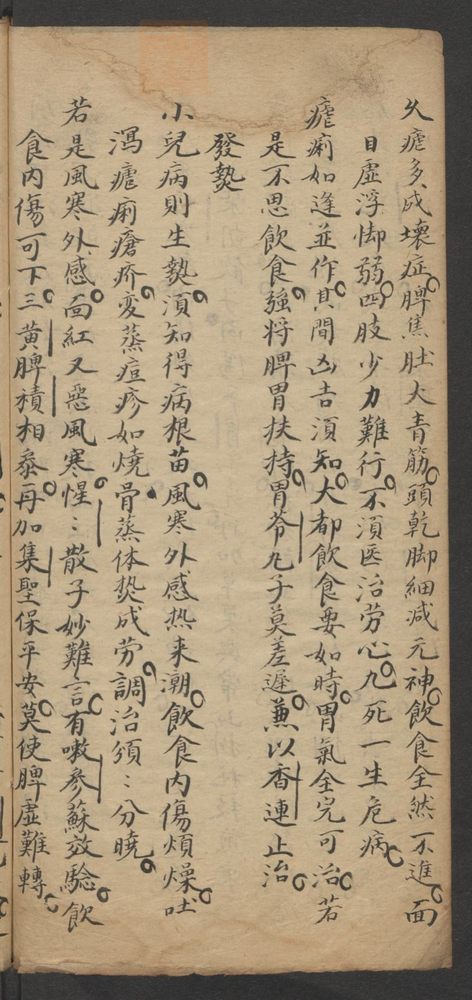 久瘧多成壞症脾焦肚大青筋頭乾脚細減元神飲食全然不進面
目虛浮脚弱四肢少力難行不須医治劳心九死一生危病
瘧痢如逢並作其間凶吉須知大都飲食要如時胃氣全完可治若
是不思飲食強将脾胃扶持胃苓丸子莫差遲兼以香連止治
發𤍠
小兒病則生𤍠須知得病根苗風寒外感热来潮飲食内傷煩燥吐
瀉瘧痢瘡疥变蒸痘疹如燒骨蒸体热成劳調治須：分曉
若是風寒外感面紅又惡風寒惺：散子妙難言有嗽參蘇效驗飲
食内傷可下三黄脾積相叅再加集聖保平安莫使脾虛難轉